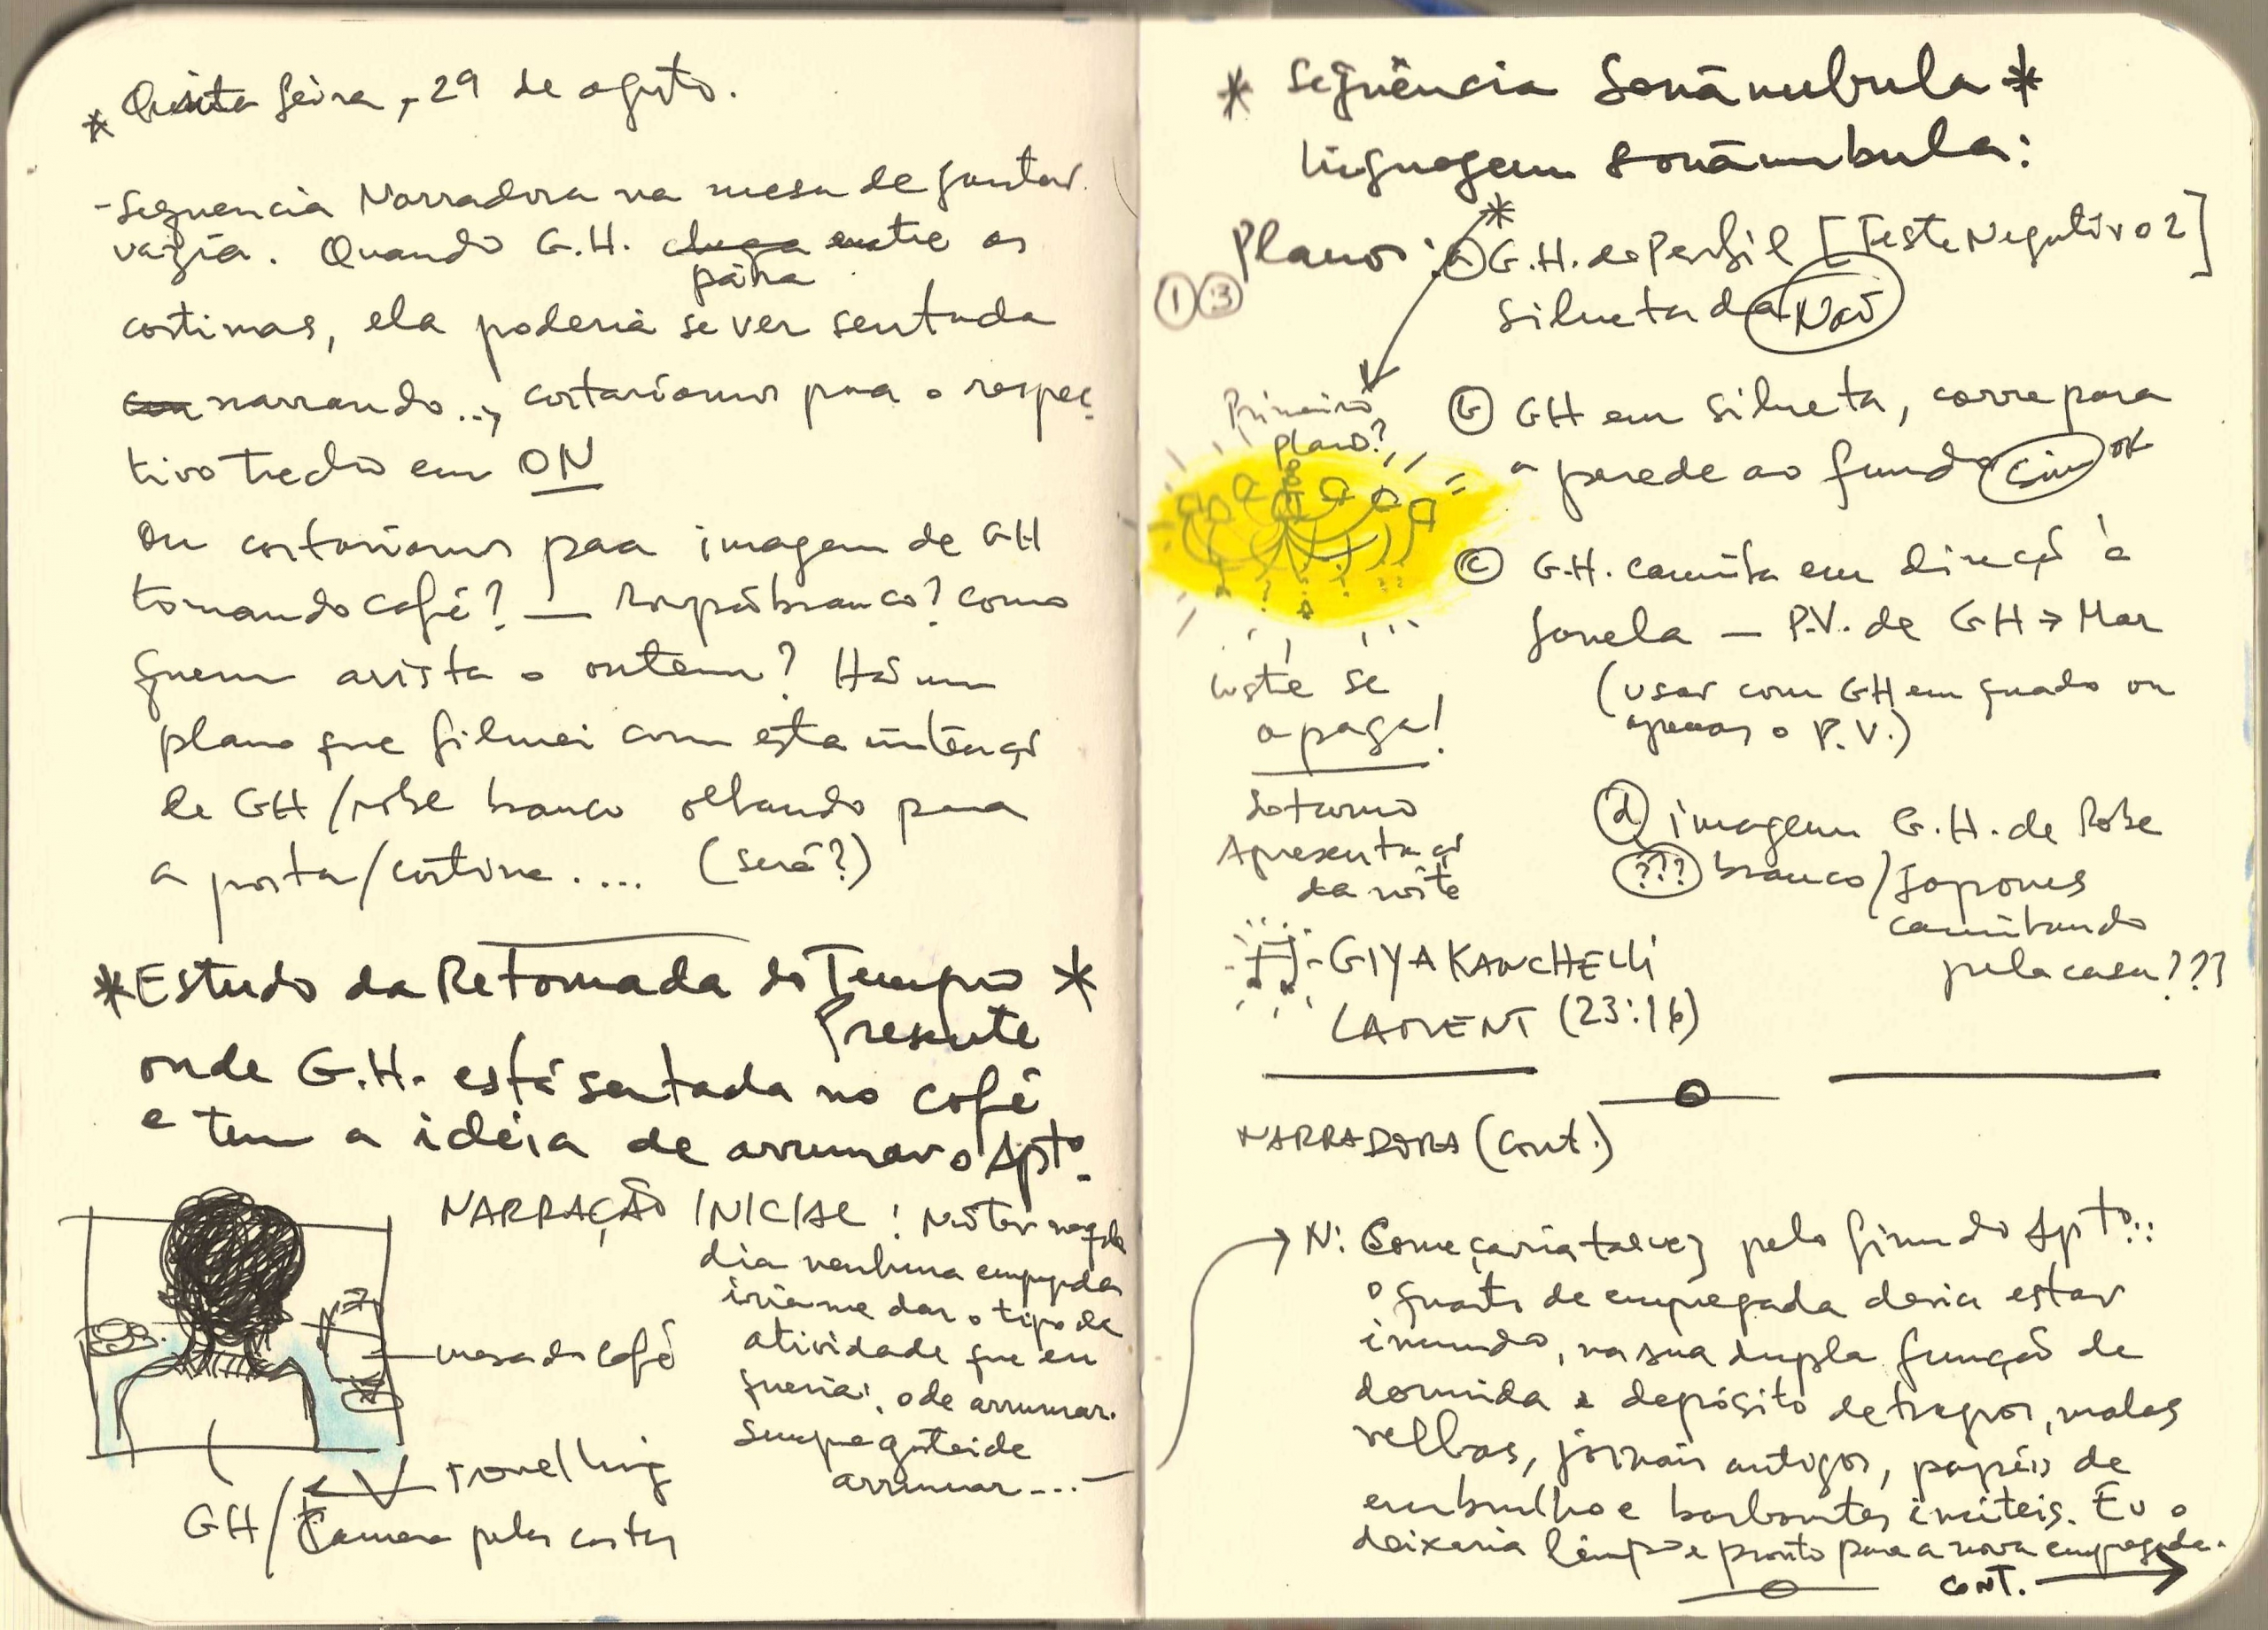 * Quinta feira, 29 de agosto.
- Sequencia Narradora na mesa de jantar
vazia. Quando G.H. chega entre as
pára
cortinas, ela poderia se ver sentada
narrando..., cortaríamos para o respec-
tivo trecho em ON
ou cortaríamos para imagem de GH
tomando café? — Roupão branco? como
quem avista o ontem? Há um
plano que filmei com esta intenção
de GH/robe branco olhando para
a porta/cortina.... (será?)
* Estudo da Retomada do Tempo *
Presente
onde G.H. está sentada no café
e tem a idéia de arrumar o Apto.
NARRAÇÃO INICIAL: Não ter naquele
dia nenhuma empregada
iria me dar o tipo de
atividade que eu
queria: o de arrumar.
Sempre gostei de
arrumar...
mesa do café
travelling
GH/Camera pelas costas
* Sequência Sonâmbula *
linguagem sonâmbula:
*
Planos: a G.H. de Perfil [Teste Negativo 2]
1 3
silhuetada Não
Primeiro
plano?
b GH em silhueta, corre para
a parede ao fundo Sim ok
c G.H. caminha em direção à
janela — P.V. de GH → Mar
(usar com GH em quadro ou
apenas o P.V.)
lustre se
apaga!
Soturno
Apresentação
da noite
d imagem G.H. de Robe
??? branco/Japones
caminhando
pela casa???
- GIYA KANCHELLI
LAMENT (23:16)
NARRADORA (Cont.)
→ N: Começaria talvez pelo fim do Apto.:
o quarto de empregada devia estar
imundo, na sua dupla função de
dormida e depósito de trapos, malas
velhas, jornais antigos, papéis de
embrulho e barbantes inúteis. Eu o
deixaria limpo e pronto para a nova empregada.
CONT. →